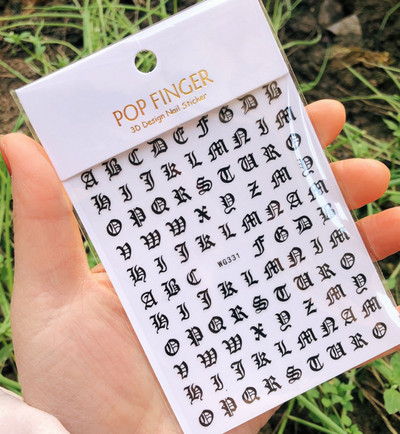 POP FINGER
3D Design Nail Sticker
A B C D E F G D B
H I J K L M N I M
O P Q R S T U R O
V W W X Y Z M
H I J K L M N A M
A B C WG331 F G D B
H I J K L M N I M
O P Q R S T U R O
V W W X Y Z M
H I J K L M N A M
O P Q R S T U R O